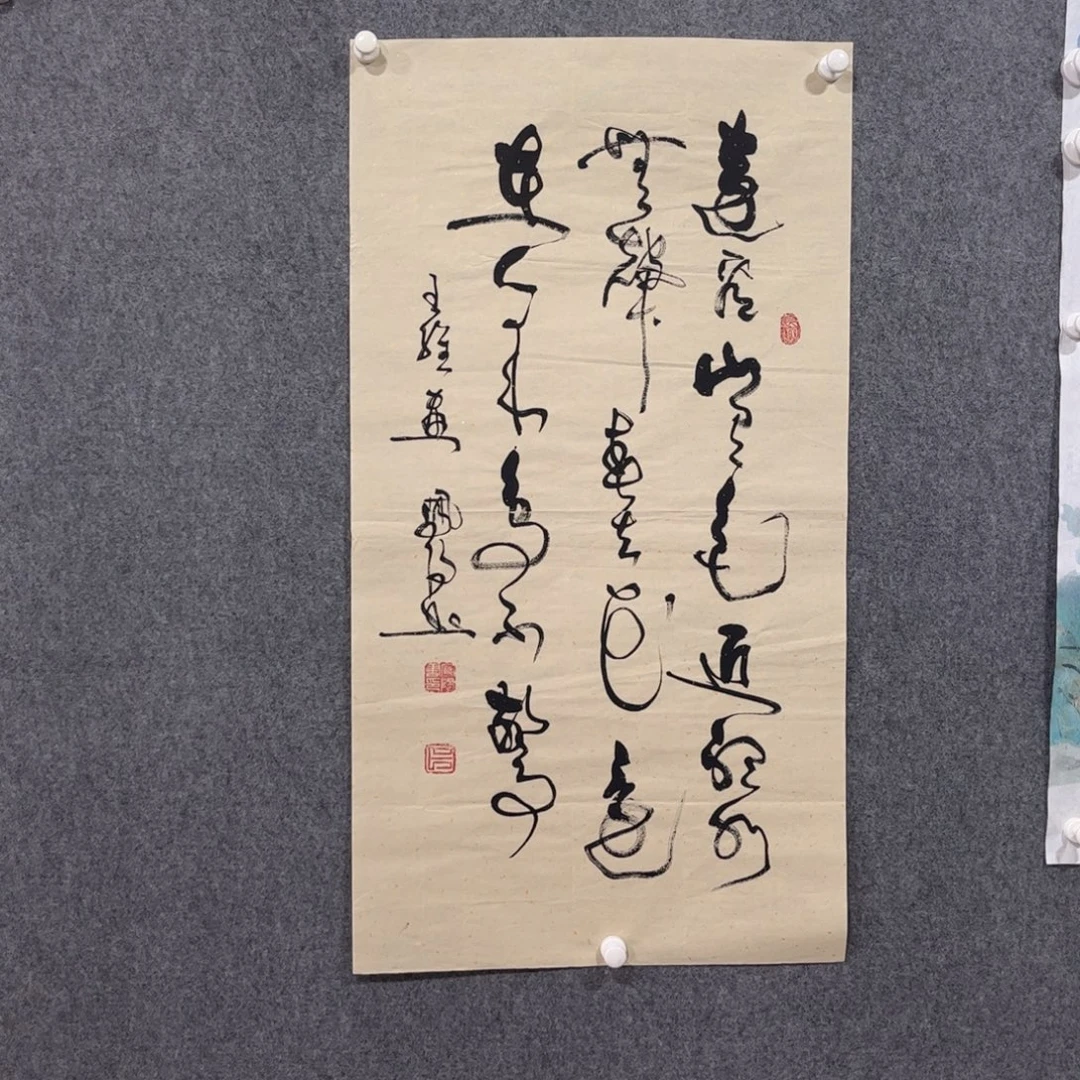 遠看山有色近聽水
無聲春去花還
在人來鳥不驚
王維畫 書